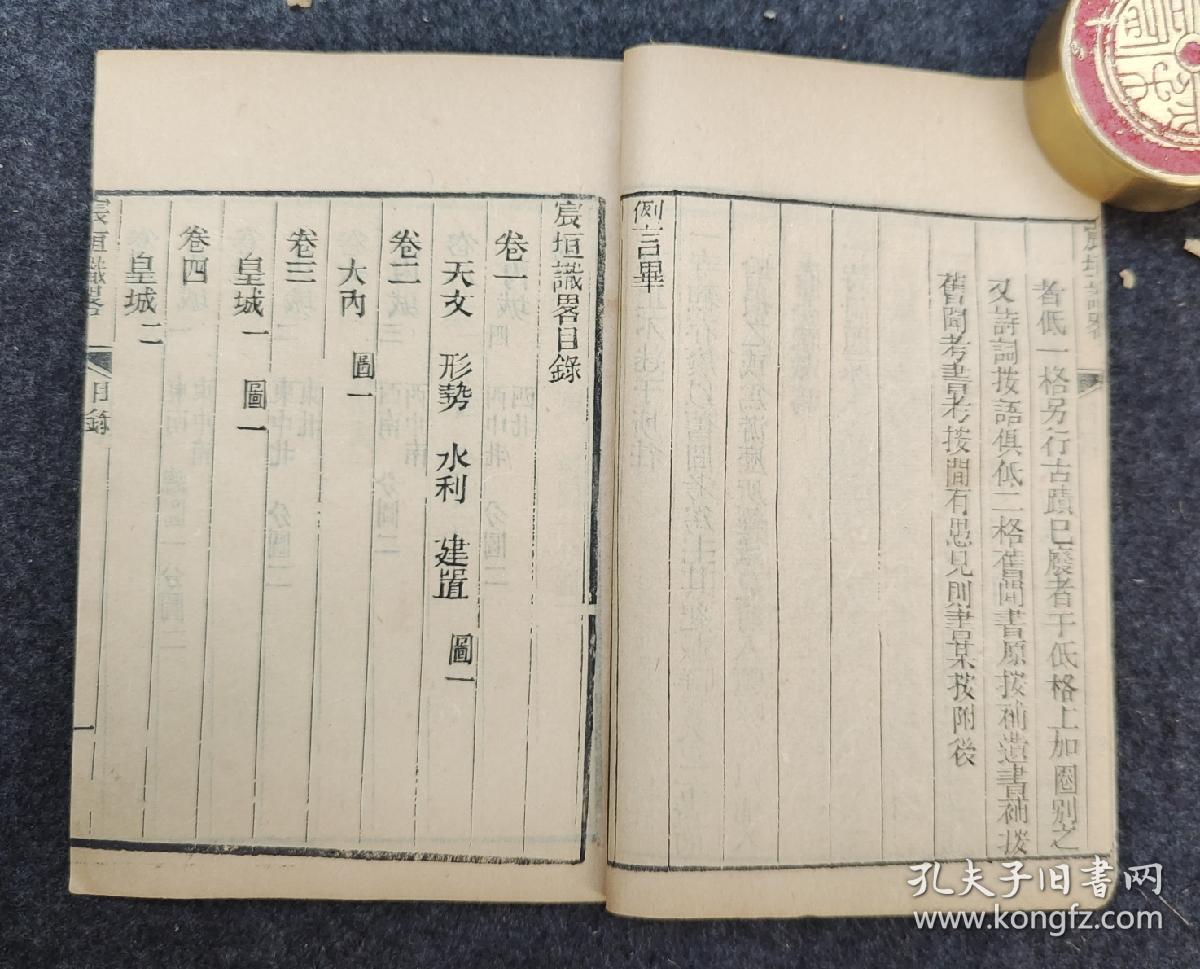 者低一格另行古蹟已廢者于低格上加圈别之
又詩詞按語俱低二格舊聞書原按補遺書補按
舊聞考書考按間有愚見則書某按附後
例言畢
宸垣識畧目錄
卷一
天文 形勢 水利 建置 圖一
卷二
大内 圖一
卷三
皇城一 圖一
卷四
皇城二
宸垣識畧 目錄 一
孔夫子旧書网
www.kongfz.com